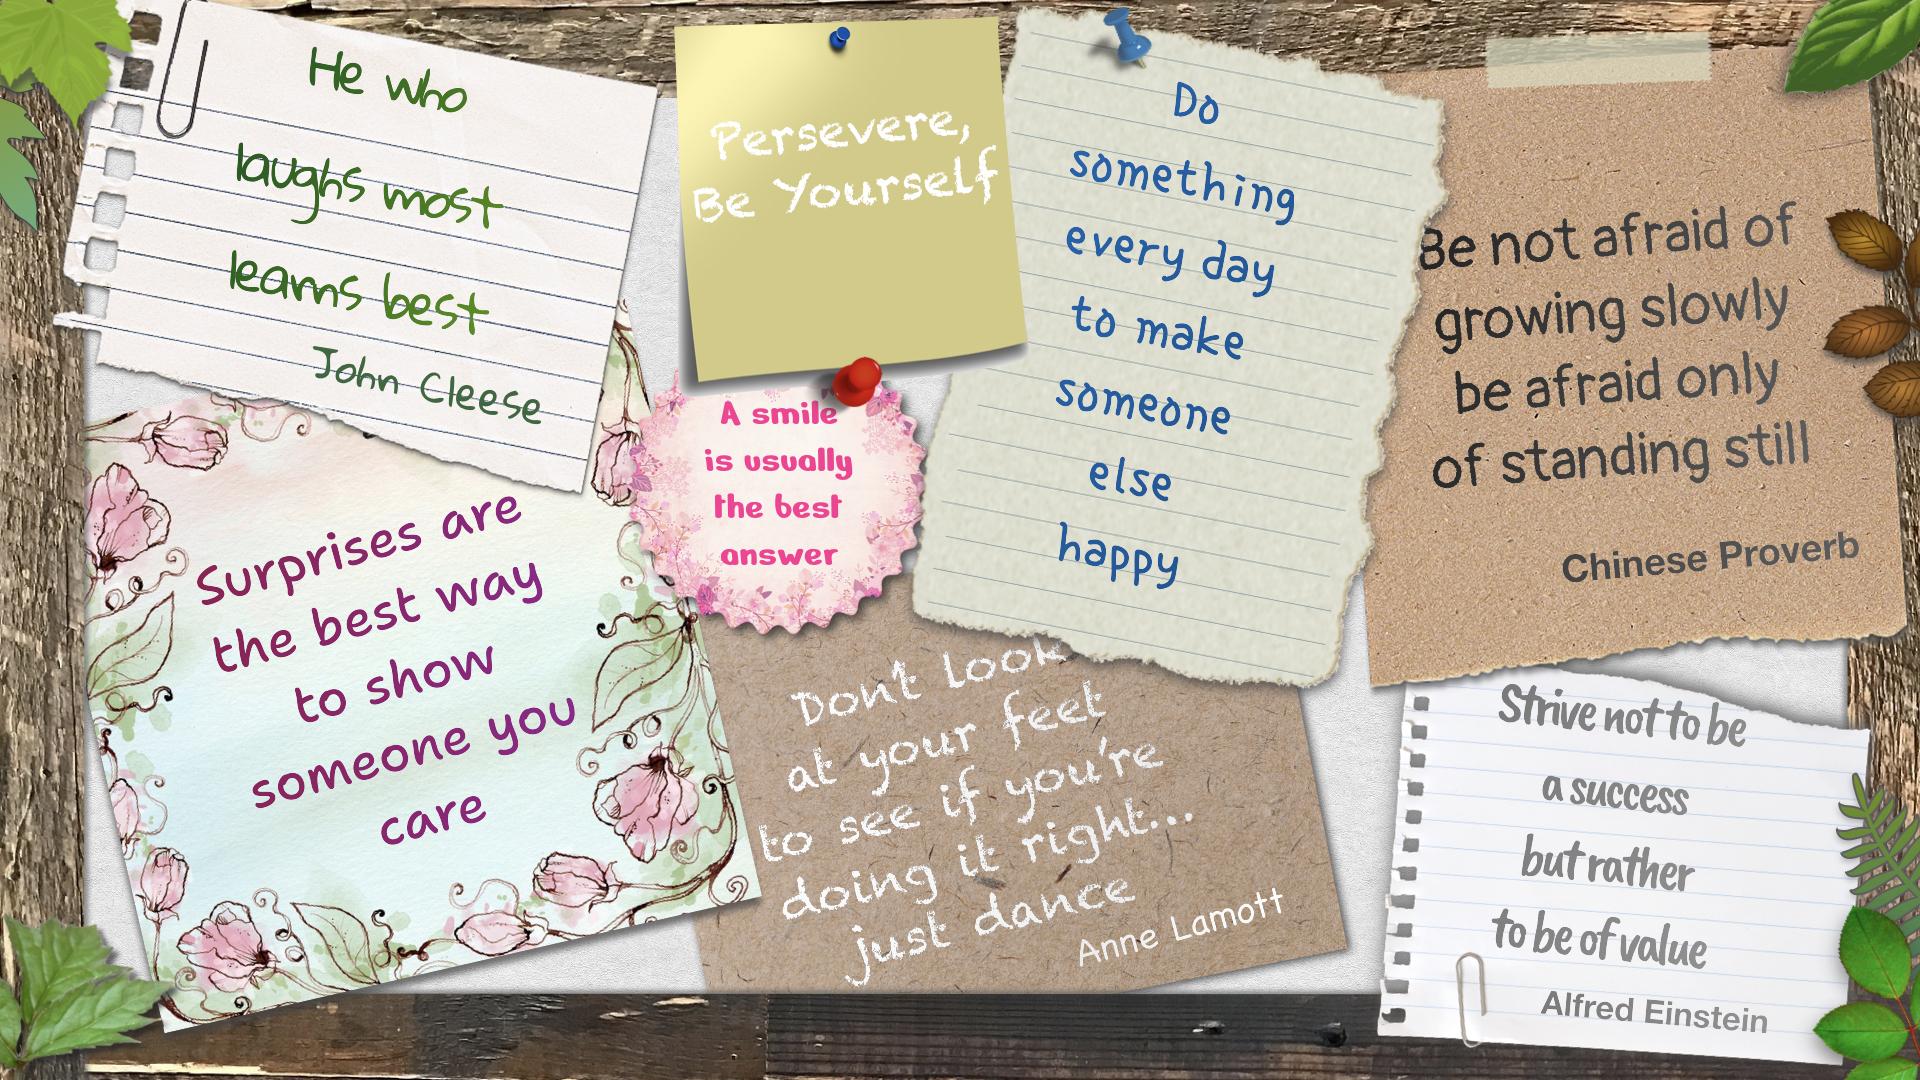 He who
laughs most
learns best
John Cleese
Persevere,
Be Yourself
Do
something
every day
to make
someone
else
happy
Be not afraid of
growing slowly
be afraid only
of standing still
Chinese Proverb
A smile
is usually
the best
answer
Surprises are
the best way
to show
someone you
care
Don't look
at your feet
to see if you're
doing it right...
just dance
Anne Lamott
Strive not to be
a success
but rather
to be of value
Alfred Einstein